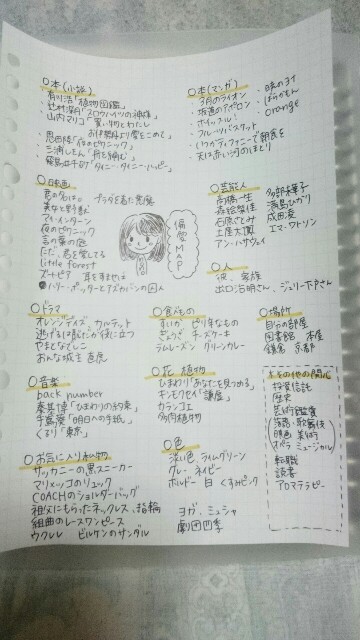 ○本(小説)
有川浩「植物図鑑」
辻村深月「スロウハイツの神様」
山内マリコ「買い物とわたし
お伊勢丹より愛をこめて」
恩田陸「夜のピクニック」
三浦しをん「舟を編む」
雛倉さりえ
「タイニー・タイニー・ハッピー」
○本(マンガ)
・3月のライオン
・坂道のアポロン
・ホイッスル!
・フルーツバスケット
・いつかティファニーで朝食を
・天は赤い河のほとり
・暁のヨナ
・ばらかもん
・orange
○映画
君の名は。
プラダを着た悪魔
美女と野獣
マイ・インターン
夜のピクニック
言の葉の庭
ただ、君を愛してる
little forest
ズートピア 耳をすませば
ハリー・ポッターとアズカバンの囚人
偏愛MAP
○芸能人
高橋一生
森絵梨佳
石原さとみ
土屋太鳳
アン・ハサウェイ
多部未華子
満島ひかり
成田凌
エマ・ワトソン
○人
彼、家族
出口治明さん、ジェリー下戸さん
○ドラマ
オレンジデイズ カルテット
逃げるは恥だが役に立つ
やまとなでしこ
おんな城主 直虎
○食べもの
すいか ピリ辛なもの
ぎょうざ チーズケーキ
ラムレーズン グリーンカレー
○場所
自分の部屋
図書館 本屋
鎌倉 京都
○音楽
back number
秦基博「ひまわりの約束」
手嶌葵「明日への手紙」
くるり「東京」
○花 植物
ひまわり「あなたを見つめる」
キンモクセイ「謙虚」
カランコエ
多肉植物
その他の関心
投資信託
歴史
芸術鑑賞
落語・歌舞伎
映画 美術
オペラ ミュージカル
転職
読書
アロマテラピー
○お気に入り私物
サッカニーの黒スニーカー
マリメッコのリュック
COACHのショルダーバッグ
祖父にもらったネックレス、指輪
組曲のレースワンピース
ウクレレ ビルケンのサンダル
○色
淡い色 ライムグリーン
グレー ネイビー
ボルドー 白 くすみピンク
ヨガ、ミュシャ
劇団四季